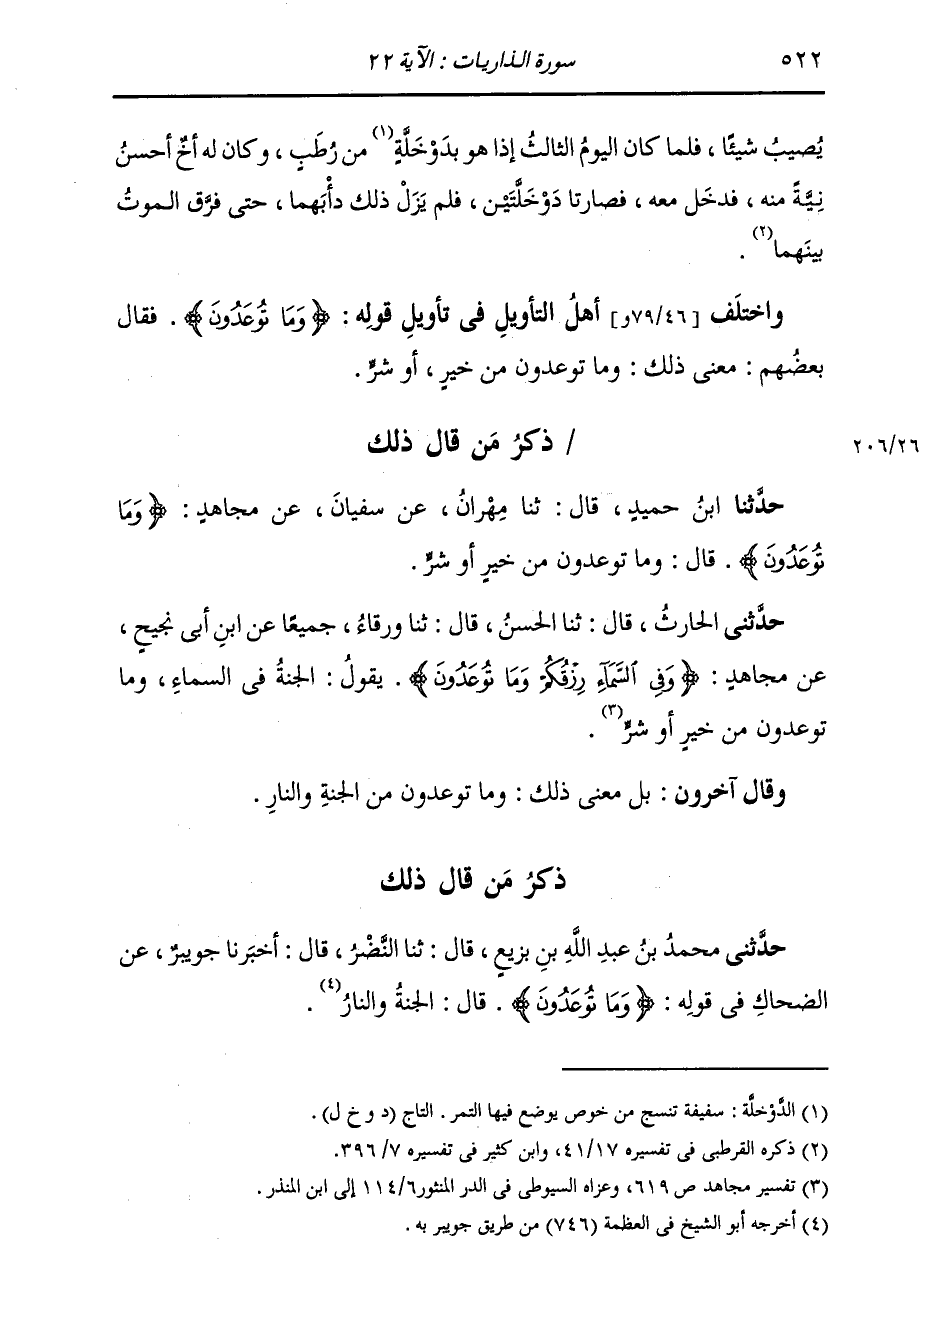 ٥٢٢ سورة الذاريات : الآية ٢٢
يُصيبُ شيئًا ، فلما كان اليومُ الثالثُ إذا هو بدَوْخَلَّةٍ(١) من رُطَبٍ ، وكان له أخٌ أحسنُ
نِيَّةً منه ، فدخَل معه ، فصارتا دَوْخَلَّتَيْن ، فلم يَزَلْ ذلك دأْبَهما ، حتى فرَّق الموتُ
بينَهما(٢) .
واختلَف [٧٩/٤٦و] أهلُ التأويلِ فى تأويلِ قولِه : ﴿وَمَا تُوعَدُونَ﴾ . فقال
بعضُهم : معنى ذلك : وما توعدون من خيرٍ ، أو شرٍّ .
/ ذكرُ مَن قال ذلك
٢٠٦/٢٦
حدَّثنا ابنُ حميدٍ ، قال : ثنا مِهْرانُ ، عن سفيانَ ، عن مجاهدٍ : ﴿وَمَا
تُوعَدُونَ﴾ . قال : وما توعدون من خيرٍ أو شرٍّ .
حدَّثنى الحارثُ ، قال : ثنا الحسنُ ، قال : ثنا ورقاءُ ، جميعًا عن ابنِ أبى نجيحٍ ،
عن مجاهدٍ : ﴿وَفِى ٱلسَّمَآءِ رِزْقُكُمْ وَمَا تُوعَدُونَ﴾ . يقولُ : الجنةُ فى السماءِ ، وما
توعدون من خيرٍ أو شرٍّ(٣) .
وقال آخرون : بل معنى ذلك : وما توعدون من الجنةِ والنارِ .
ذكرُ مَن قال ذلك
حدَّثنى محمدُ بنُ عبدِ اللَّهِ بنِ بزيعٍ ، قال : ثنا النَّضْرُ ، قال : أخبَرنا جويبرٌ ، عن
الضحاكِ فى قولِه : ﴿وَمَا تُوعَدُونَ﴾ . قال : الجنةُ والنارُ(٤) .
(١) الدَّوْخلَّة : سفيفة تنسج من خوص يوضع فيها التمر . التاج (د و خ ل) .
(٢) ذكره القرطبى فى تفسيره ٤١/١٧، وابن كثير فى تفسيره ٧/ ٣٩٦.
(٣) تفسير مجاهد ص ٦١٩، وعزاه السيوطى فى الدر المنثور ١١٤/٦ إلى ابن المنذر .
(٤) أخرجه أبو الشيخ فى العظمة (٧٤٦) من طريق جويبر به .